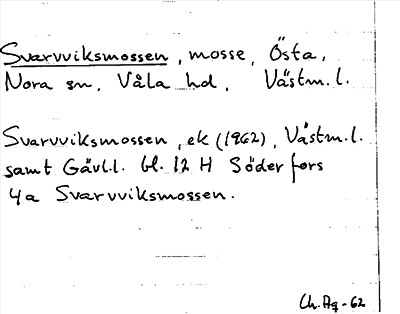 Svarvviksmossen, mosse, Östa,
Nora sn, Våla hd, Västm.l.
Svarvviksmossen, ek (1962), Västm.l.
samt Gävl.l. bl. 12 H Söderfors
4a Svarvviksmossen.
Ch.Ag -62